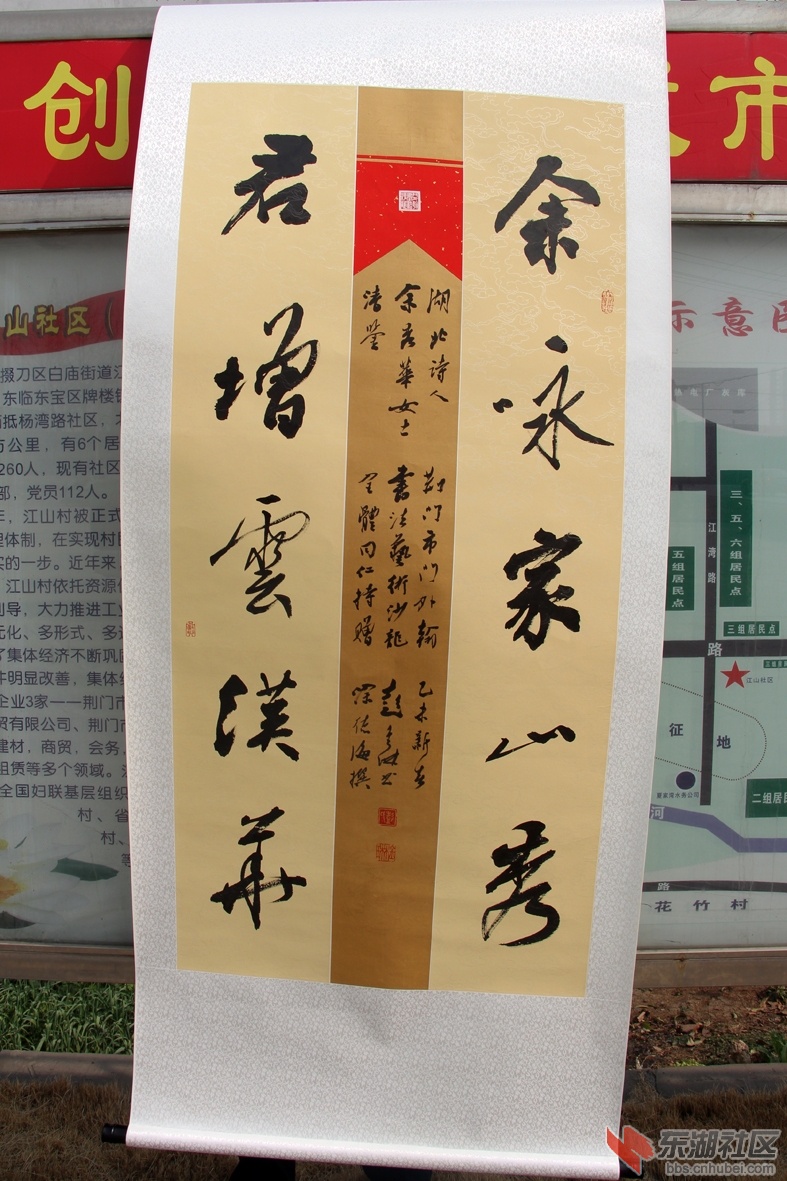 余咏家山秀
君增雲漢華
湖北诗人
余秀華女士
清鉴
荆门市门外翰
書法藝術沙龍
全體同仁持贈
乙未新春
创
市
山社区（
掇刀区白庙街道江
东临东宝区牌楼镇
抵杨湾路社区，
方公里，有6个居
260人，现有社区
部，党员112人。
年，江山村被正式
理体制，在实现村民
实的一步。近年来，
江山村依托资源
导，大力推进工
元化、多形式、多
了集体经济不断巩固
年明显改善，集体
企业3家——荆门市
贸有限公司、荆门市
建材，商贸，会务，
租赁等多个领域。
全国妇联基层组织
村、省
村、
等
示意图
三、五、六组居民点
江湾路
五组居民点
三组居民点
路
江山社区
征地
二组居民
河
路
花竹村
东湖社区
bbs.cnhubei.com